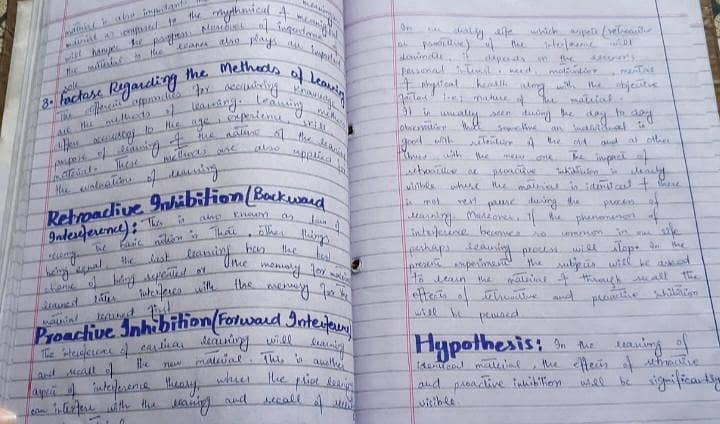 material is also important. 
material as opposed to the rhythmical & meaningful
will hamper the progress. Moreover of importance of
the material to the learner also plays an important
role.
3. Factors Regarding the Methods of Learning
The different approaches for acquiring knowledge
are the methods of learning. Learning methods
differ according to the age, experience, skill
purpose of learning & the nature of the learning
material. These methods are also applied for
the evaluation of learning
Retroactive Inhibition (Backward
Intereference): This is also known as law of
recency. The basic notion is that, other things
being equal, the last learning has the best
chance of being repeated or the memory for material
learned later interferes with the memory for the
material learned first.
Proactive Inhibition (Forward Interference)
The interference of earlier learning will learning
and recall of the new material. This is another
aspect of interference theory, where the prior learning
can interfere with the learning and recall of
In our daily life which aspect (retroactive
or proactive) of the interference will
dominate, it depends on the learner's
personal interest, need, motivation, mental
& physical health along with the objective
factor i.e; nature of the material.
It is usually seen during the day to day
observation that sometime an individual is
good with retention of the old and at other
times with the new one. The impact of
retroactive or proactive inhibition is clearly
visible where the material is identical & there
is not rest pause during the process of
learning. Moreover, if the phenomenon of
interference becomes so common in our life
perhaps learning process will stop. In the
present experiment the subjects will be asked
to learn the material & through recall the
effects of retroactive and proactive inhibition
will be
Hypothesis: In the learning of
identical material, the effects of retroactive
and proactive inhibition will be significantly
visible.